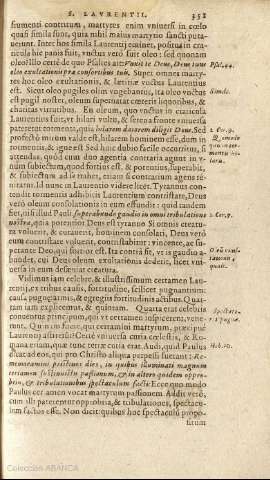 S. LAVRENTII. 352
frumenti contritum, martyres enim vniuersi in cœlo
quasi simila sunt, quia nihil maius martyrio sancti puta-
uerunt. Inter hos simila Laurentij eximet, postquã in cra-
ticula hic panis fuit, vnctus verò fuit oleo: sed quonam
oleo? Illo certè de quo Psaltes ait: Vnxit te Deus, Deus tuus
oleo exultationis præ consortibus tuis. Super omnes marty-
res hoc oleo exultationis, & lætitiæ vnctus Laurentius
est. Sicut oleo pugiles olim vngebantur, ita oleo vnctus
est pugil noster, oleum supernatat cæteris liquoribus, &
charitas virtutibus. En oleum, quo vnctus in craticula
Laurentius fuit, vt hilari vultu, & serena fronte vniuersa
pateretur tormenta, quia hilarem datorem diligit Deus. Sed
profectò mirum valde est, hilarem hominem esse, dum in
tormentis, & igne est Sed huic dubio facile occurrimus, si
attendas, quòd cum duo agentia contraria agunt in v-
num subiectum, quod fortius est, & potentius, superabit,
& subiectum ad se trahet, etiam si contrarium agens re-
tinuerit. Id nunc in Laurentio videre licet. Tyrannus con-
tendit tormentis adhibitis Laurentium contristare, Deus
verò oleum consolationis in eum effundit: quid tandem
fiet, nisi illud Pauli Superabundo gaudio in omni tribulatione
nostra, quia potentior Deus est tyranno Si omnes creatu-
ræ voluerit, & curauerit, hominem consolari, Deus verò
eum contristare voluerit, contristabitur: vincente, ac su-
perante Deo, qui fortior est. Ita contrà fit, vt is gaudio a-
bundet, cui Deus oleum exultationis dederit, licet vni-
uersa in eum deseuiat creatura.
Vidimus iam celebre, & illustrissimum certamen Lau-
rentij, ex tribus causis, fortitudine, scilicet pugnantium:
causa pugnæ: armis, & egregijs fortitudinis actibus. Quar-
tam iam explicemus, & quintam. Quarta erat celebris
conuentus principum, qui vt certamen inspicerent, vene-
runt. Quin in fuere, qui certamini martyrum, præcipuè
Laurentij astiterūt? Certè vniuersa curia cœlestis, & Ro-
mana etiam, quæ tunc terræ curia erat. Audi, quid Paulus
dicat ad eos, qui pro Christo aliqua perpessi fuerant: Re-
mementamini pristinos dies, in quibus illuminati magnum
certamen sustinuistis passionum, & in altero quidem oppro-
brijs, & tribulationibus spectaculum facti: Ecce quo modo
Paulus certamen vocat martyrum passionem Addit verò,
cum illi paterentur opprobria, & tribulationes, spectacu-
lum factos esse. Non dicit: quibus hoc spectaculo propo-
situm
Psal. 44.
Simile.
2. Cor. 9.
2. Cor. 7.
Heb. 10.
Colección ABANCA